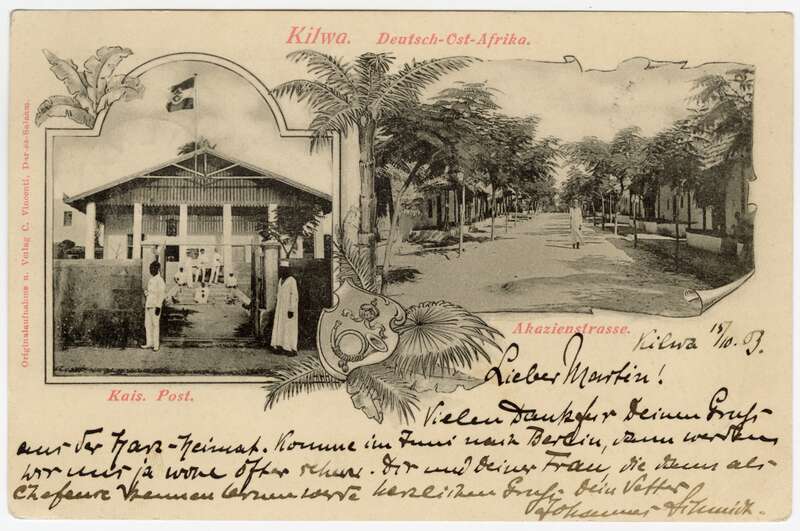 Kilwa. Deutsch-Ost-Afrika.
Originalaufnahme u. Verlag C. Vincenti, Dar-es-Salaam.
Kais. Post.
Akazienstrasse.
Kilwa 15/10. 03.
Lieber Martin!
Vielen Dank für Deinen Gruß
aus der Harz-Heimat. Komme im Juni nach Berlin, dann werden
wir uns ja wohl öfter sehen. Dir und Deiner Frau, die dann als
kennen lernen werde herzlichen Gruß Dein Vetter
Johannes Schmidt.